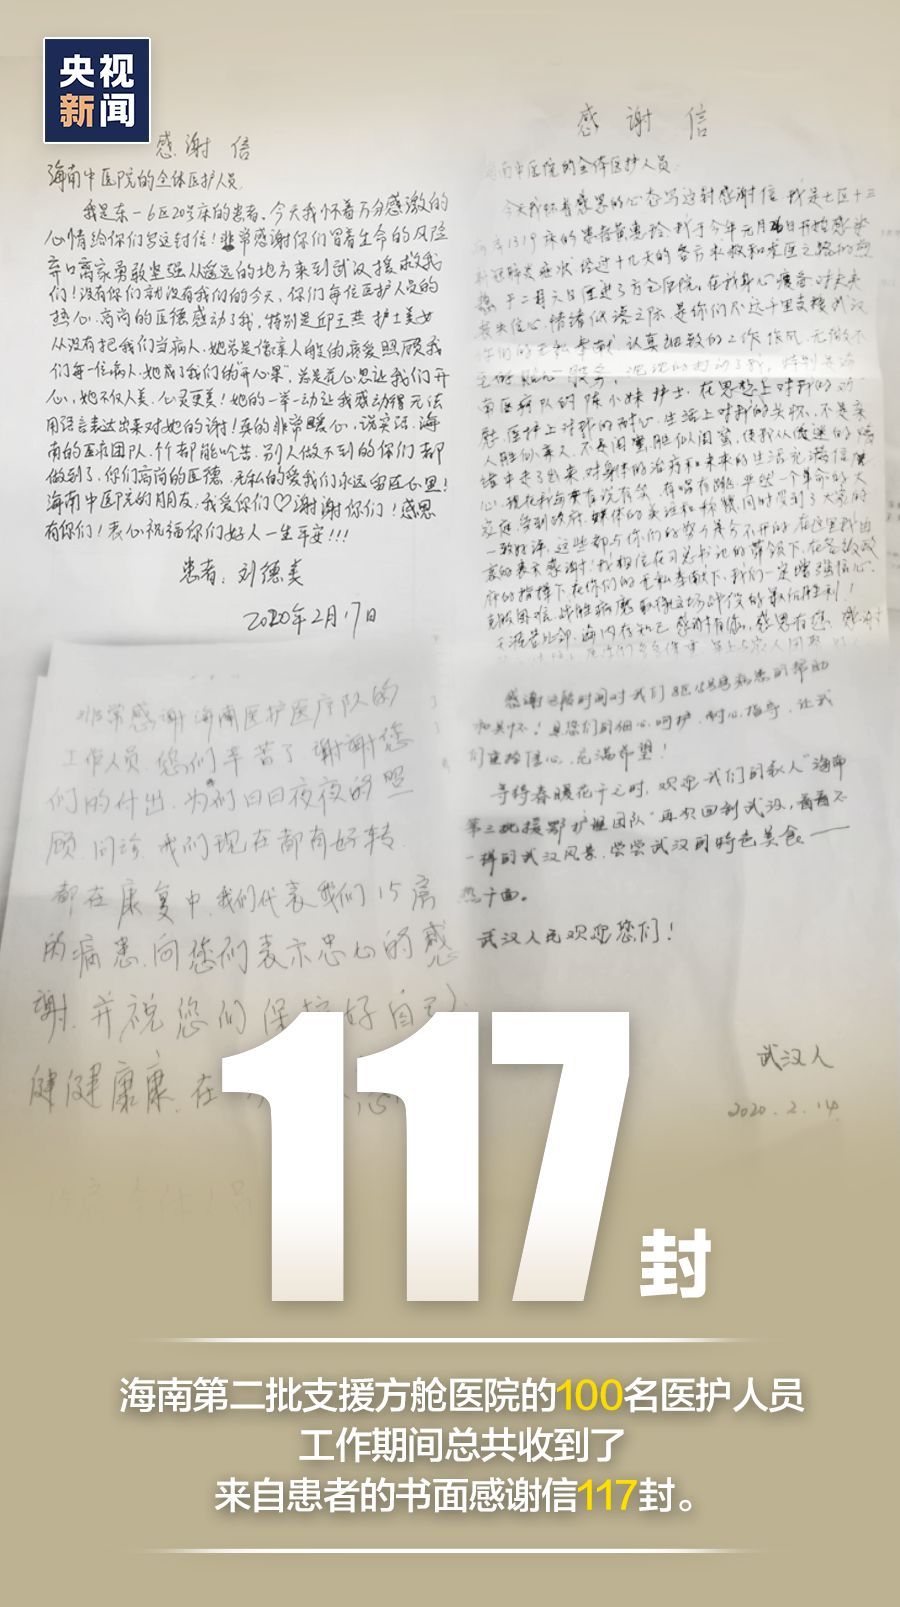 央视
新闻
感谢信
海南中医院的全体医护人员
我是东一6区20号床的患者,今天我怀着万分感激的
心情给你们写这封信!非常感谢你们冒着生命的风险
弃口离家勇敢坚强从遥远的地方来到武汉援救我
们!没有你们就没有我们的今天,你们每位医护人员的
热心、高尚的医德感动了我,特别是邱玉燕护士美女
从没有把我们当病人,她总是像亲人般的疼爱照顾我
们每一位病人,她成了我们的"开心果",总是花心思让我们开
心,她不仅人美,心灵更美!她的一举一动让我感动得无法
用语言表达出来对她的谢!真的非常暖心,说实话,海
南的医疗团队,个个都能吃苦,别人做不到的你们都
做到了,你们高尚的医德,无私的爱我们永远留在心里!
海南中医院的朋友,我爱你们♡谢谢你们!感恩
有你们!衷心祝福你们好人一生平安!!!
患者:刘德美
2020年2月17日
感谢信
海南中医院的全体医护人员
今天我怀着感恩的心态写这封感谢信,我是七区十三
热于二月六日住进了方仓医院,在我身心疲备对未来
丧失信心,情绪低落之际,是你们不远千里支援武汉
你们的无私奉献,认真细致的工作作风,无微不
至的贴心服务,深深的打动了我,特别是海
南医疗队的陈小妹护士,在思想上对我的劝
慰,医护上对我的耐心,生活上对我的关怀,不是亲
人胜似亲人,不是闺蜜胜似闺蜜,使我从低迷的情
绪中走了出来,对身体的治疗和未来的生活充满信
心,现在我每天有说有笑,有唱有跳,
一致好评,这些都与你们的努力是分不开的,在这里我由
衷的表示感谢!我相信在习总书记的带领下,在各级政
府的指挥下,在你们的无私奉献下,我们一定增强信心,
克服困难,战胜病魔,取得这场战役的最后胜利!
非常感谢海南医护医疗队的
工作人员,您们辛苦了,谢谢您
们的付出,为我们日日夜夜的照
顾,问诊,我们现在都有好转,
都在康复中,我们代表我们15房
的病患,向您们表示忠心的感
谢,并祝您们保护好自己,
健健康康,在
感谢这段时间对我们
和关怀!是您们的细心呵护,耐心指导,让我
们重拾信心,充满希望!
等待春暖花开之时,欢迎我们的亲人"海南
第三批援鄂护理团队"再次回到武汉,看看不
一样的武汉风景,尝尝武汉的特色美食——
热干面。
武汉人民欢迎您们!
武汉人
2020.2.14
117封
海南第二批支援方舱医院的100名医护人员
工作期间总共收到了
来自患者的书面感谢信117封。